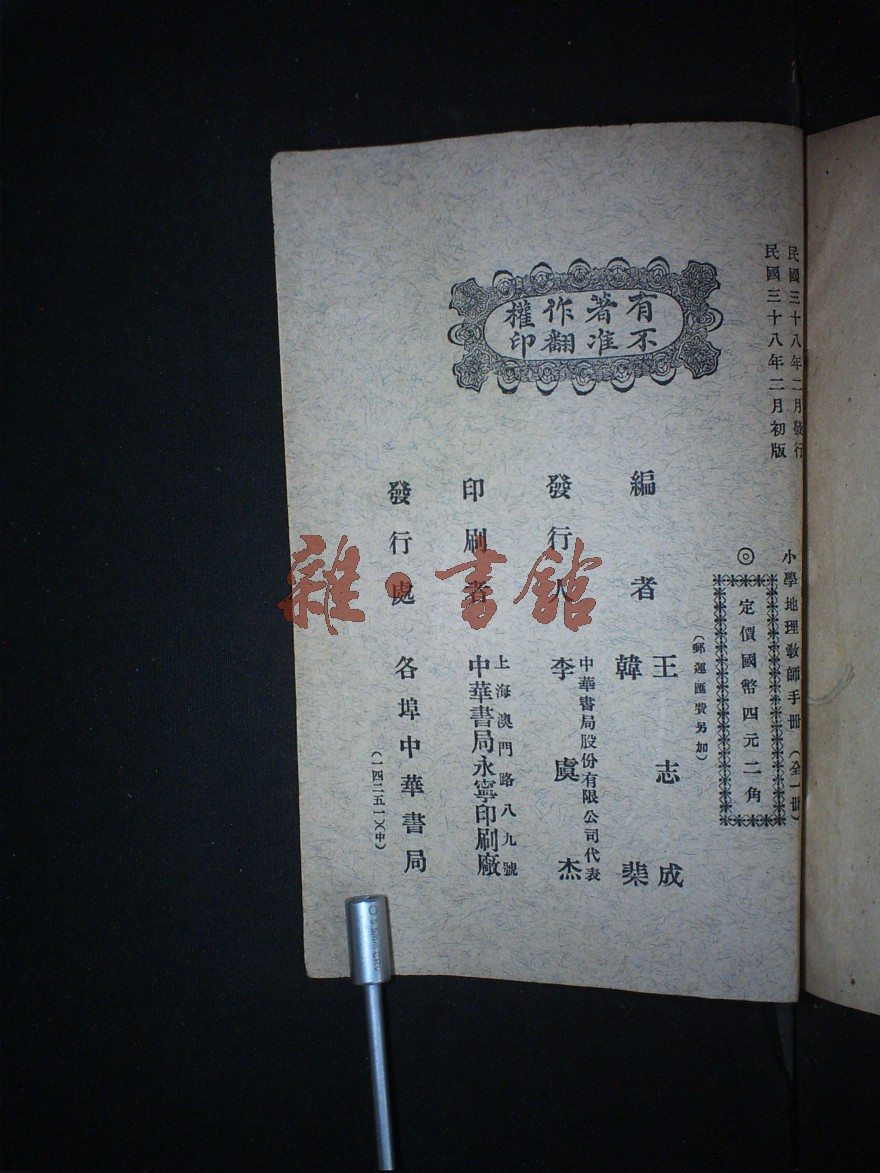 民國三十八年二月發行
民國三十八年二月初版
小學地理教師手冊（全一冊）
◎定價國幣四元二角
（郵運匯費另加）
有著作權
不准翻印
編者
王志成
韓棐
發行人
中華書局股份有限公司代表
李虞杰
印刷者
上海澳門路八九號
中華書局永寧印刷廠
發行處
各埠中華書局
（一四二五一）（中）
雜·書館